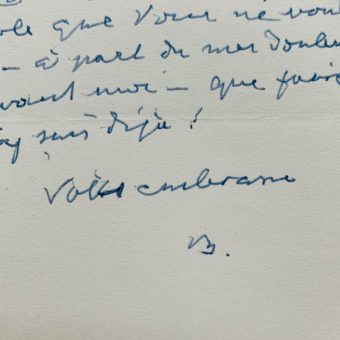 que vous ne voul
— à part de mes doule
vant moi — que faire
suis déjà !
Vous embrasse
B.